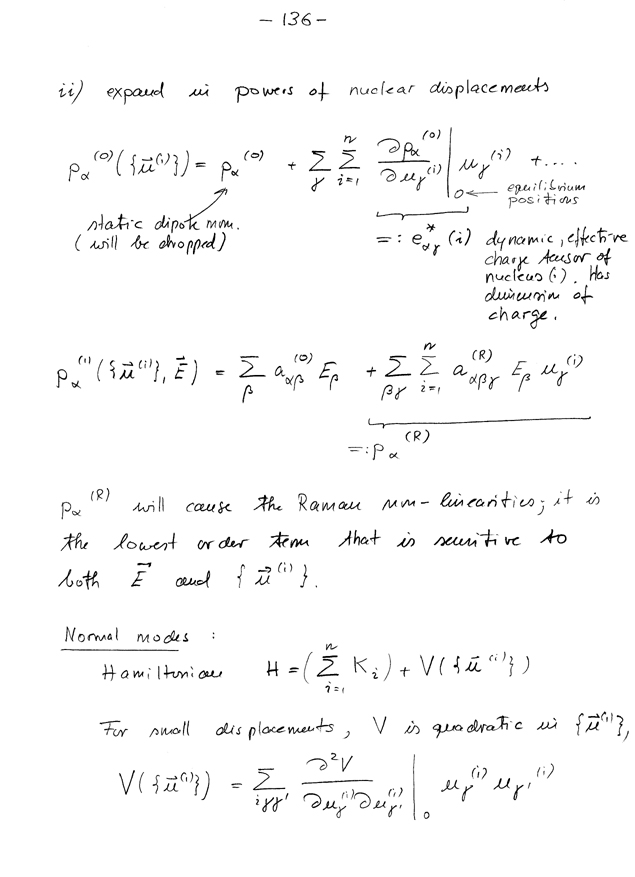 - 136 -
ii) expand in powers of nuclear displacements
p_α^(0)({u⃗^(i)}) = p_α^(0) + Σ_γ Σ_{i=1}^n ∂p_α^(0)/∂u_γ^(i) |_0 u_γ^(i) + ....
← equilibrium positions
static dipole mom.
(will be dropped)
=: e*_αγ (i) dynamic, effective
charge tensor of
nucleus (i). Has
dimension of
charge.
p_α^(1)({u⃗^(i)}, E⃗) = Σ_β a_αβ^(0) E_β + Σ_βγ Σ_{i=1}^n a_αβγ^(R) E_β u_γ^(i)
=: p_α^(R)
p_α^(R) will cause the Raman non-linearities; it is
the lowest order term that is sensitive to
both E⃗ and {u⃗^(i)}.
Normal modes :
Hamiltonian H = (Σ_{i=1}^n K_i) + V({u⃗^(i)})
For small displacements, V is quadratic in {u⃗^(i)},
V({u⃗^(i)}) = Σ_{iγγ'} ∂²V/∂u_γ^(i)∂u_γ'^(i) |_0 u_γ^(i) u_γ'^(i)